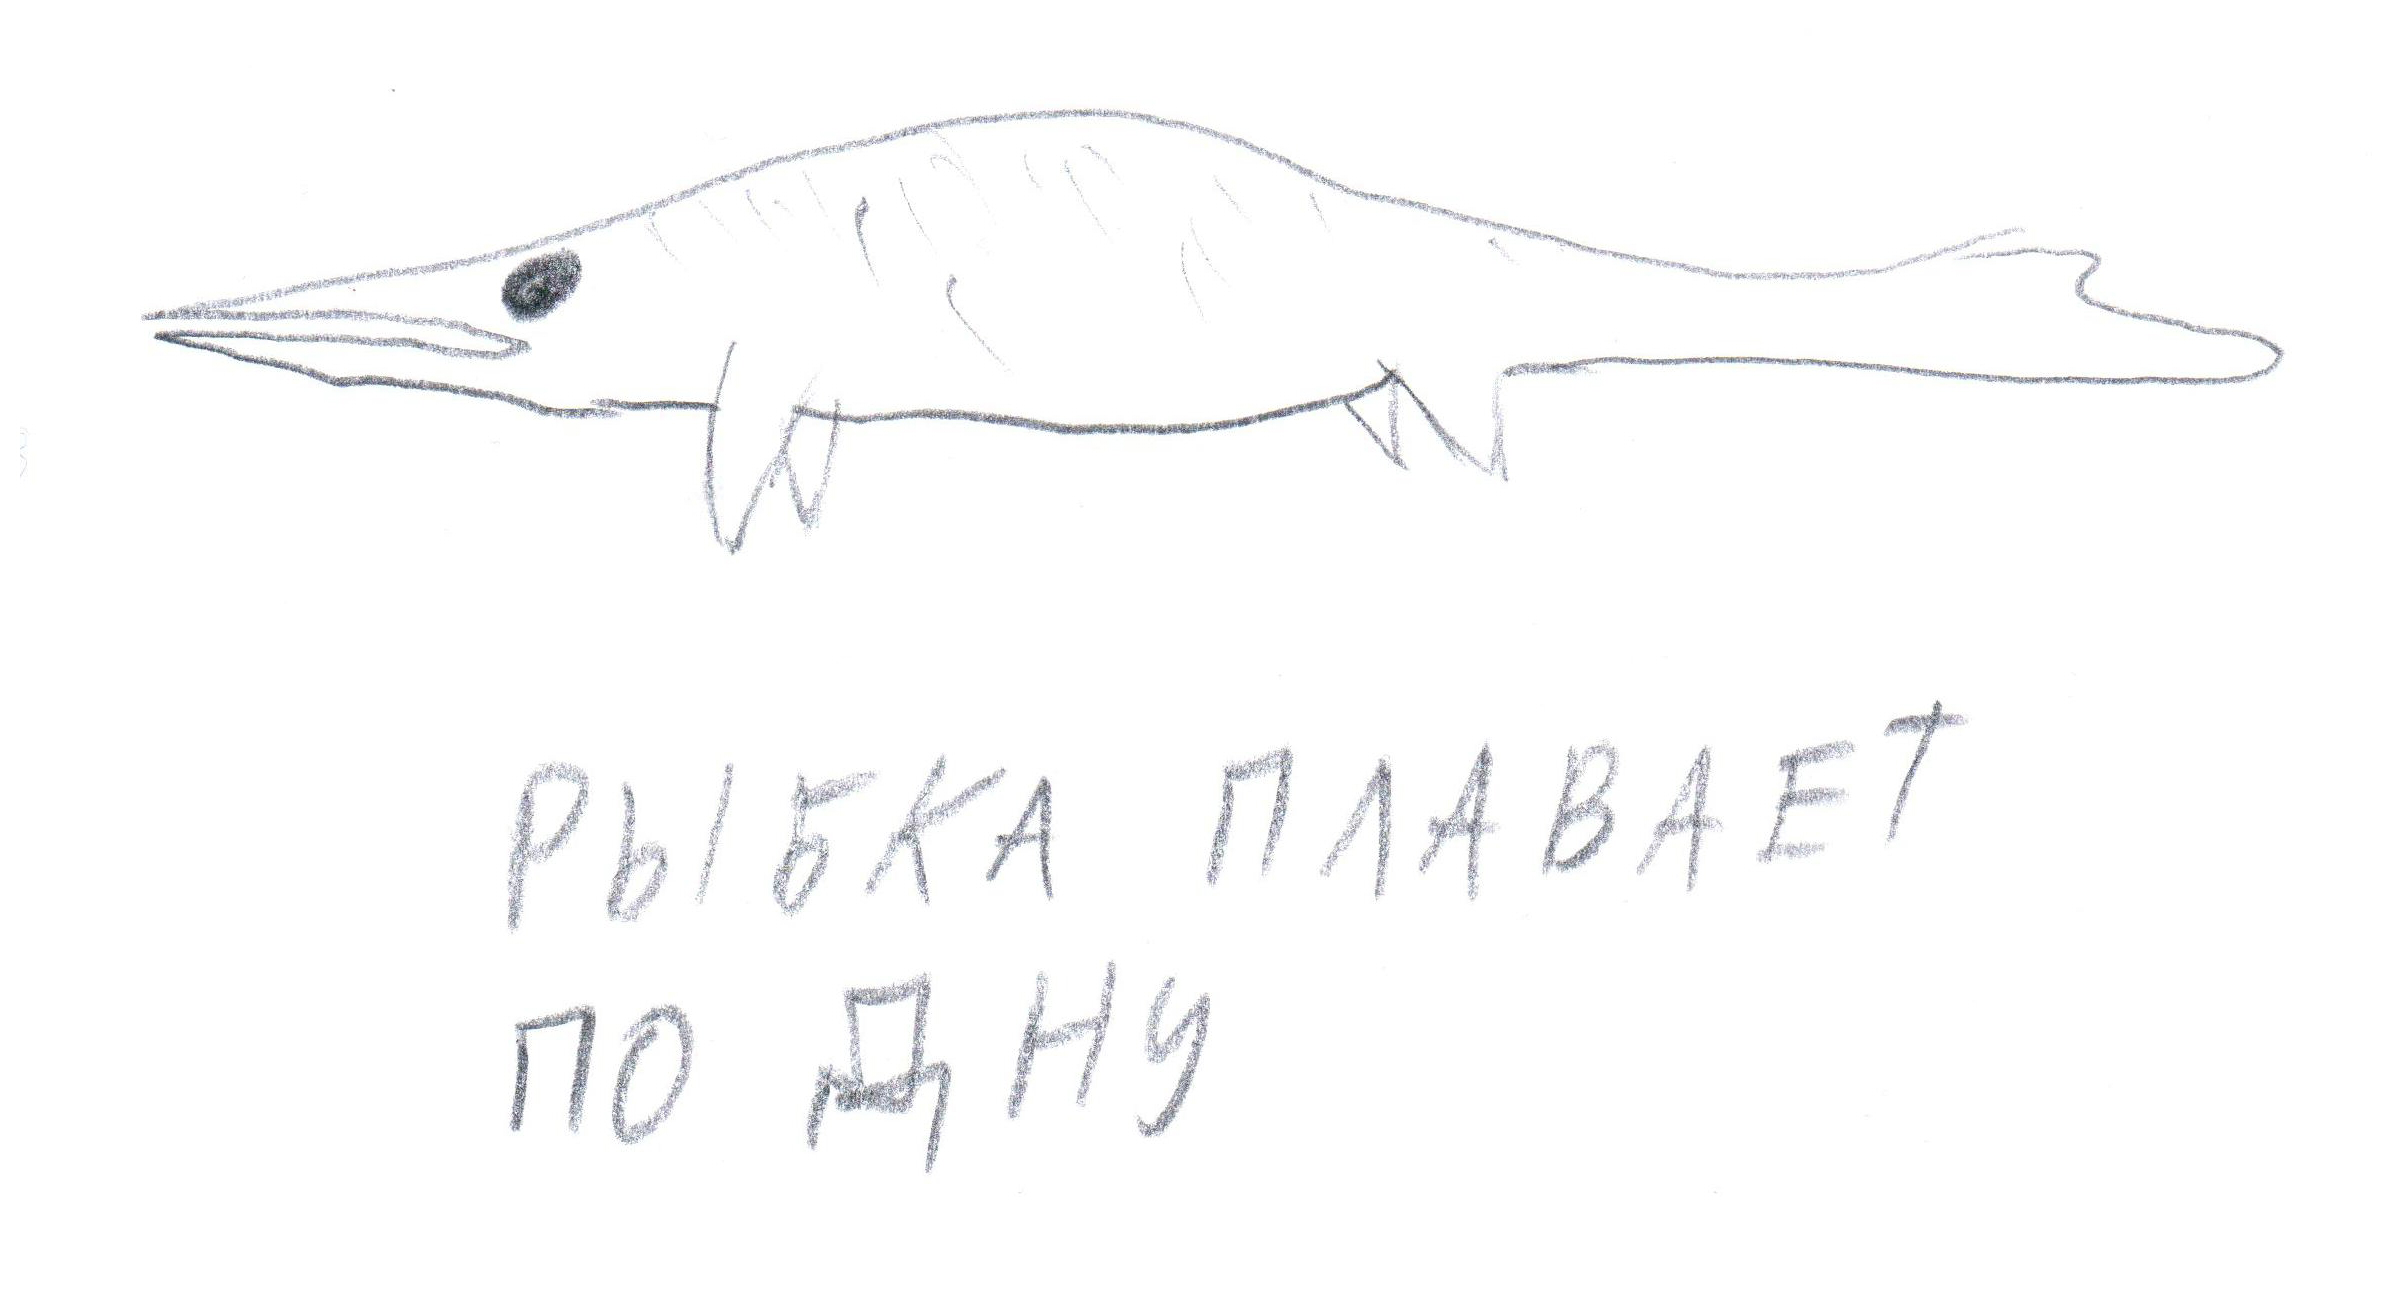 РЫБКА ПЛАВАЕТ
ПО ДНУ